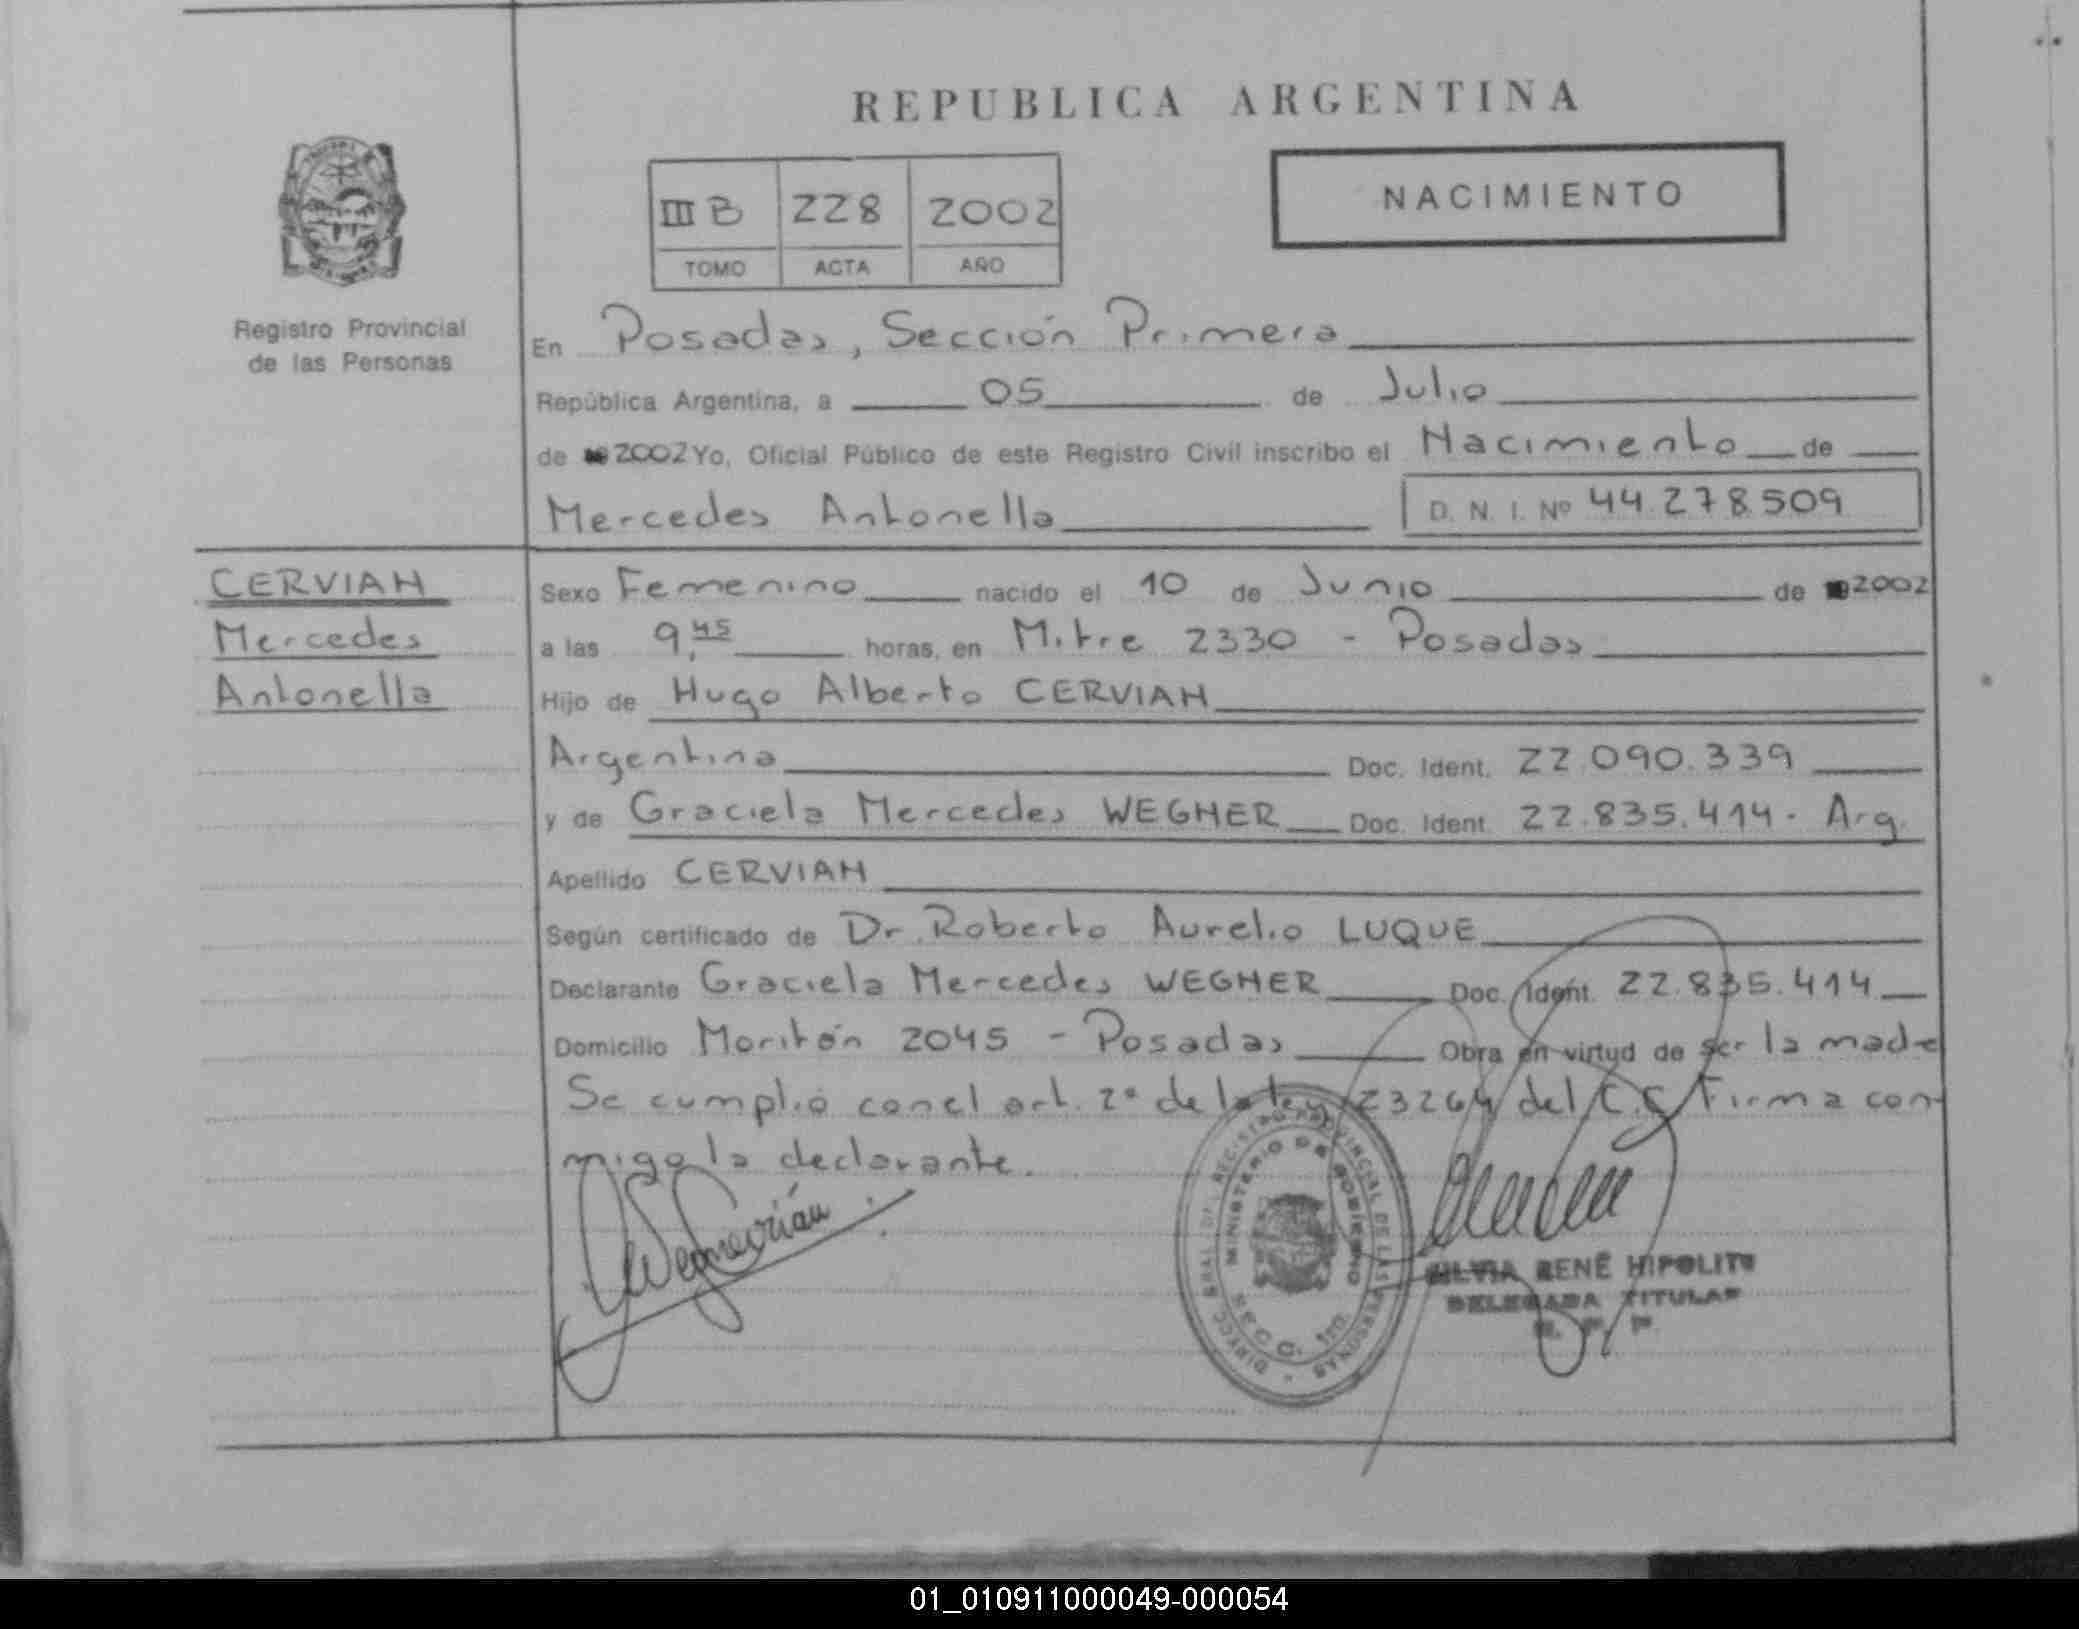 REPUBLICA ARGENTINA
NACIMIENTO
III B 228 2002
TOMO ACTA AÑO
Registro Provincial
de las Personas
En Posadas, Sección Primera
República Argentina, a 05 de Julio
de 2002 Yo, Oficial Público de este Registro Civil inscribo el Nacimiento de
Mercedes Antonella D. N. I. Nº 44.278.509
CERVIAN
Mercedes
Antonella
Sexo Femenino nacido el 10 de Junio de 2002
a las 9,45 horas, en Mitre 2330 - Posadas
Hijo de Hugo Alberto CERVIAN
Argentina Doc. Ident. 22.090.339
y de Graciela Mercedes WEGNER Doc. Ident. 22.835.414. Arg.
Apellido CERVIAN
Según certificado de Dr. Roberto Aurelio LUQUE
Declarante Graciela Mercedes WEGNER Doc. Ident. 22.835.414
Domicilio Moritán 2045 - Posadas Obra en virtud de ser la madre
Se cumplió con el art. 2º de la ley 23264 del C.C. Firma con
migo la declarante.
DIRECC. GRAL. DEL REGISTRO PROVINCIAL DE LAS PERSONAS
MINISTERIO DE GOBIERNO
SILVIA RENÉ HIPOLITO
DELEGADA TITULAR
R. P. P.
01_010911000049-000054